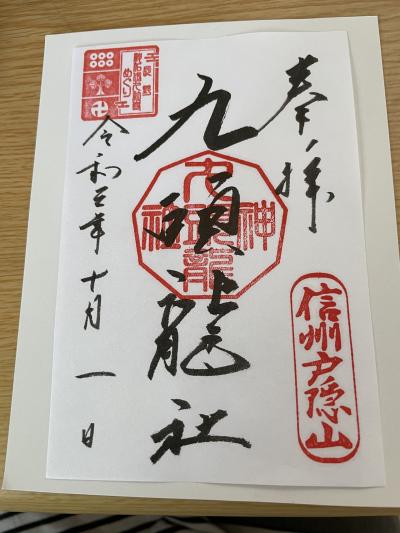 奉拝
信州戸隠山
九頭龍社
九頭龍神社
令和三年十月一日